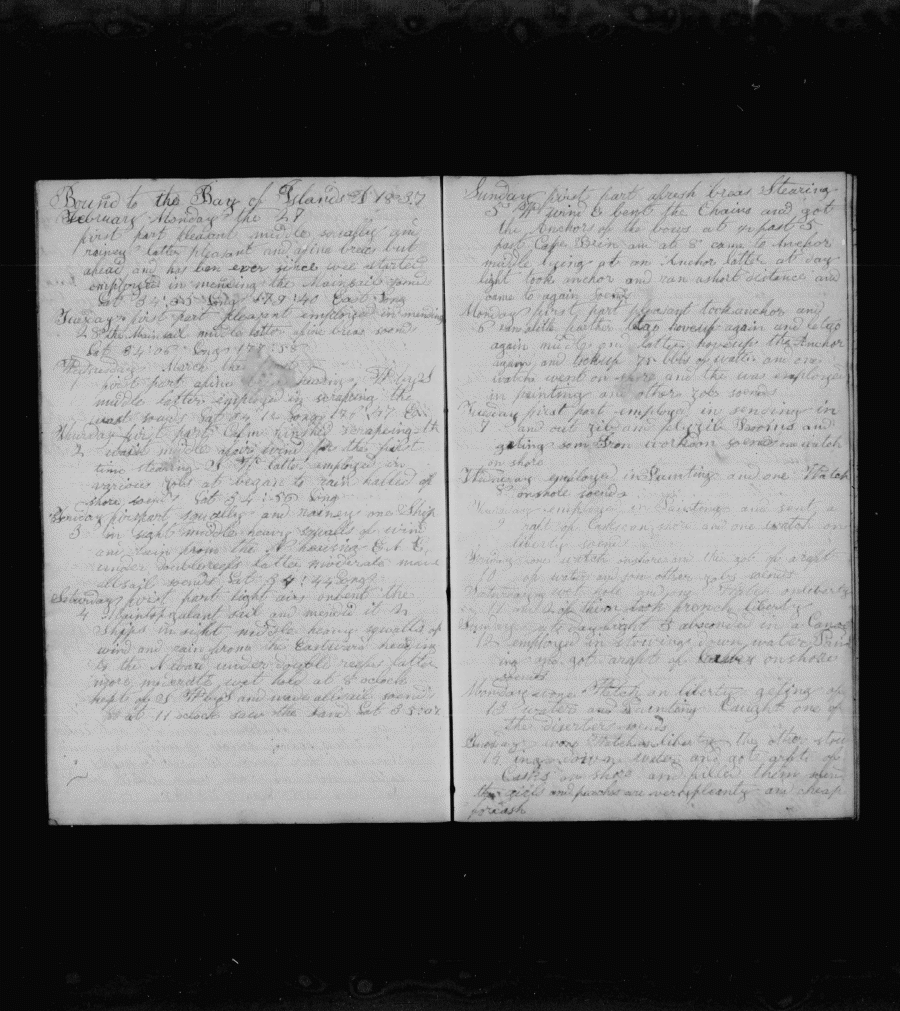 Bound to the Bay of Islands A 1837
February Monday the 27
first part pleasant middle squaly and
rainey latter pleasant and a fine breas but
ahead and has ben ever since wee started
employed in mending the Mainsail sounds
Lat 34:35 Long 179:40 East Long
Tuesday first part pleasant employed in mending
28 the Mainsail midle latter a fine breas sounds
Lat 34:06 Long 177:58
Wednesday March the
1 first part a fine heading W by S
middle latter employed in scraping the
Lat 34 12 Long
Thursday first part Calm finished scraping the
2 middle a fair wind for the first
time stearing W latter employed in
various jobs at began to rain halled of
shore sounds Lat 34:56 Long
Friday firs part squaley and rainey one Ship
3 in sight middle heavy squalls of wind
and rain from the N heading E N E
under doublereefs latter moderate made
all sail sounds Lat 34:44 Long
Saturday first part light airs onbent the
4 Maintopgalant sail and mended it 2
Ships in sight middle heavy squalls of
wind and rain from the Eastward heading
to the N ward under double reefs latter
more moderate wet hold at 8 oclock
kept of S W by S and made all sail sounds
at 11 oclock saw the land Lat 35:02
Sunday first part afresh breas Stearing
5 W wind E bent the Chains and got
the Anchors of the bows at ½ past 5
past Cape Brein and at 8 came to Anchor
midle lying at an Anchor latter at day
light took anchor and ran a short distance and
came to again sounds
Monday first part pleasant took anchor and
6 ran little farther let go hoveup again and letgo
again midle end latter hoveup the Anchor
again and tookup 75 bbls of watter and one
watch went on shore and the was employed
in painting and other jobs sounds
Tuesday first part employed in sending in
7 and out jib and flyjib booms and
geting som Iron work don sounds one watch
on shore
Wednesday employed in Painting and one Watch
8 onshole sounds
Thursday employed in Painting and sent a
9 raft of Casks on shore and one watch on
liberty sounds
Friday one watch onshore and the got of a raft
10 of water and som other jobs sounds
Saturday wet hole and one Watch on liberty
11 and 2 of them took french liberty
Sunday at daylight 3 absconded in a Canoe
12 employed in stowing down water Paint
ing and got a raft of Casks on shole
sounds
Monday one Watch on liberty geting of
13 water and painting Caught one of
the diserters sounds
Tuesday one Watch on liberty the other stow
14 ing down water and got a raft of
Casks on shore and filled them
the girls and peaches are very pleanty and cheap
for cash